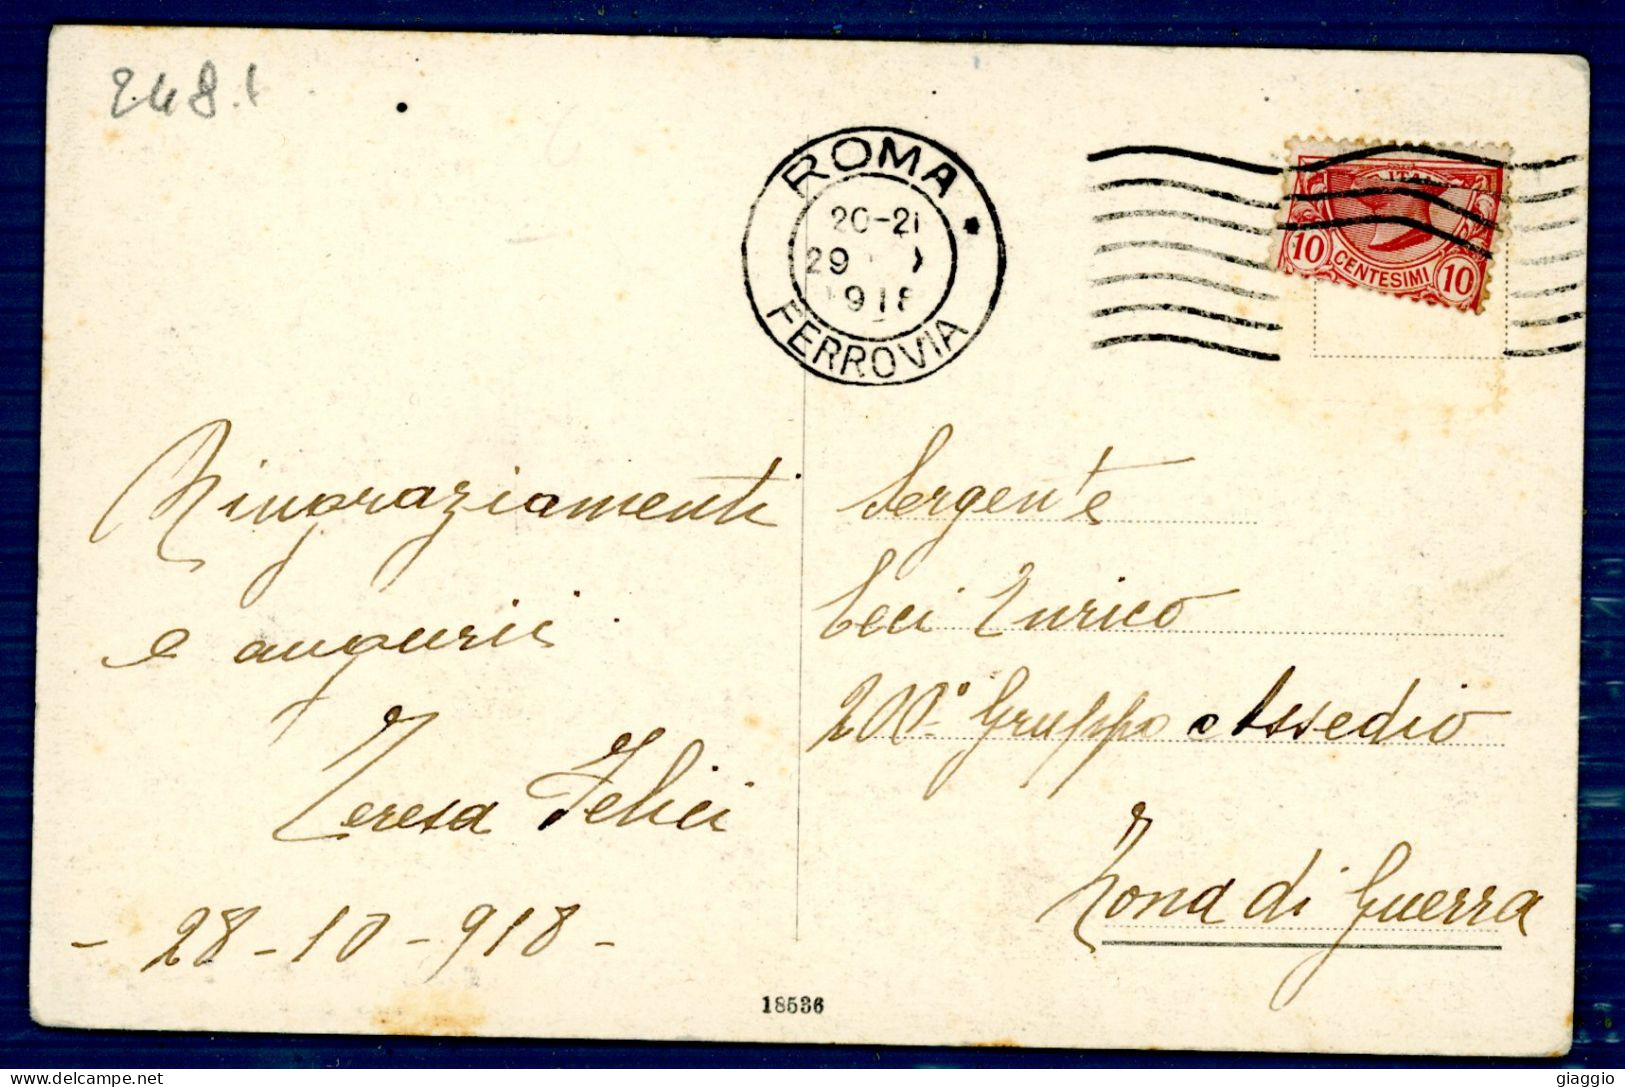 248.t
ROMA
20-21
29 X
1918
FERROVIA
ITALI
10 CENTESIMI 10
Ringraziamenti
e augurii
Teresa Felici
- 28 - 10 - 918 -
Sergente
Ceci Enrico
200° Gruppo Assedio
Zona di Guerra
18536
delcampe.net
giaggio